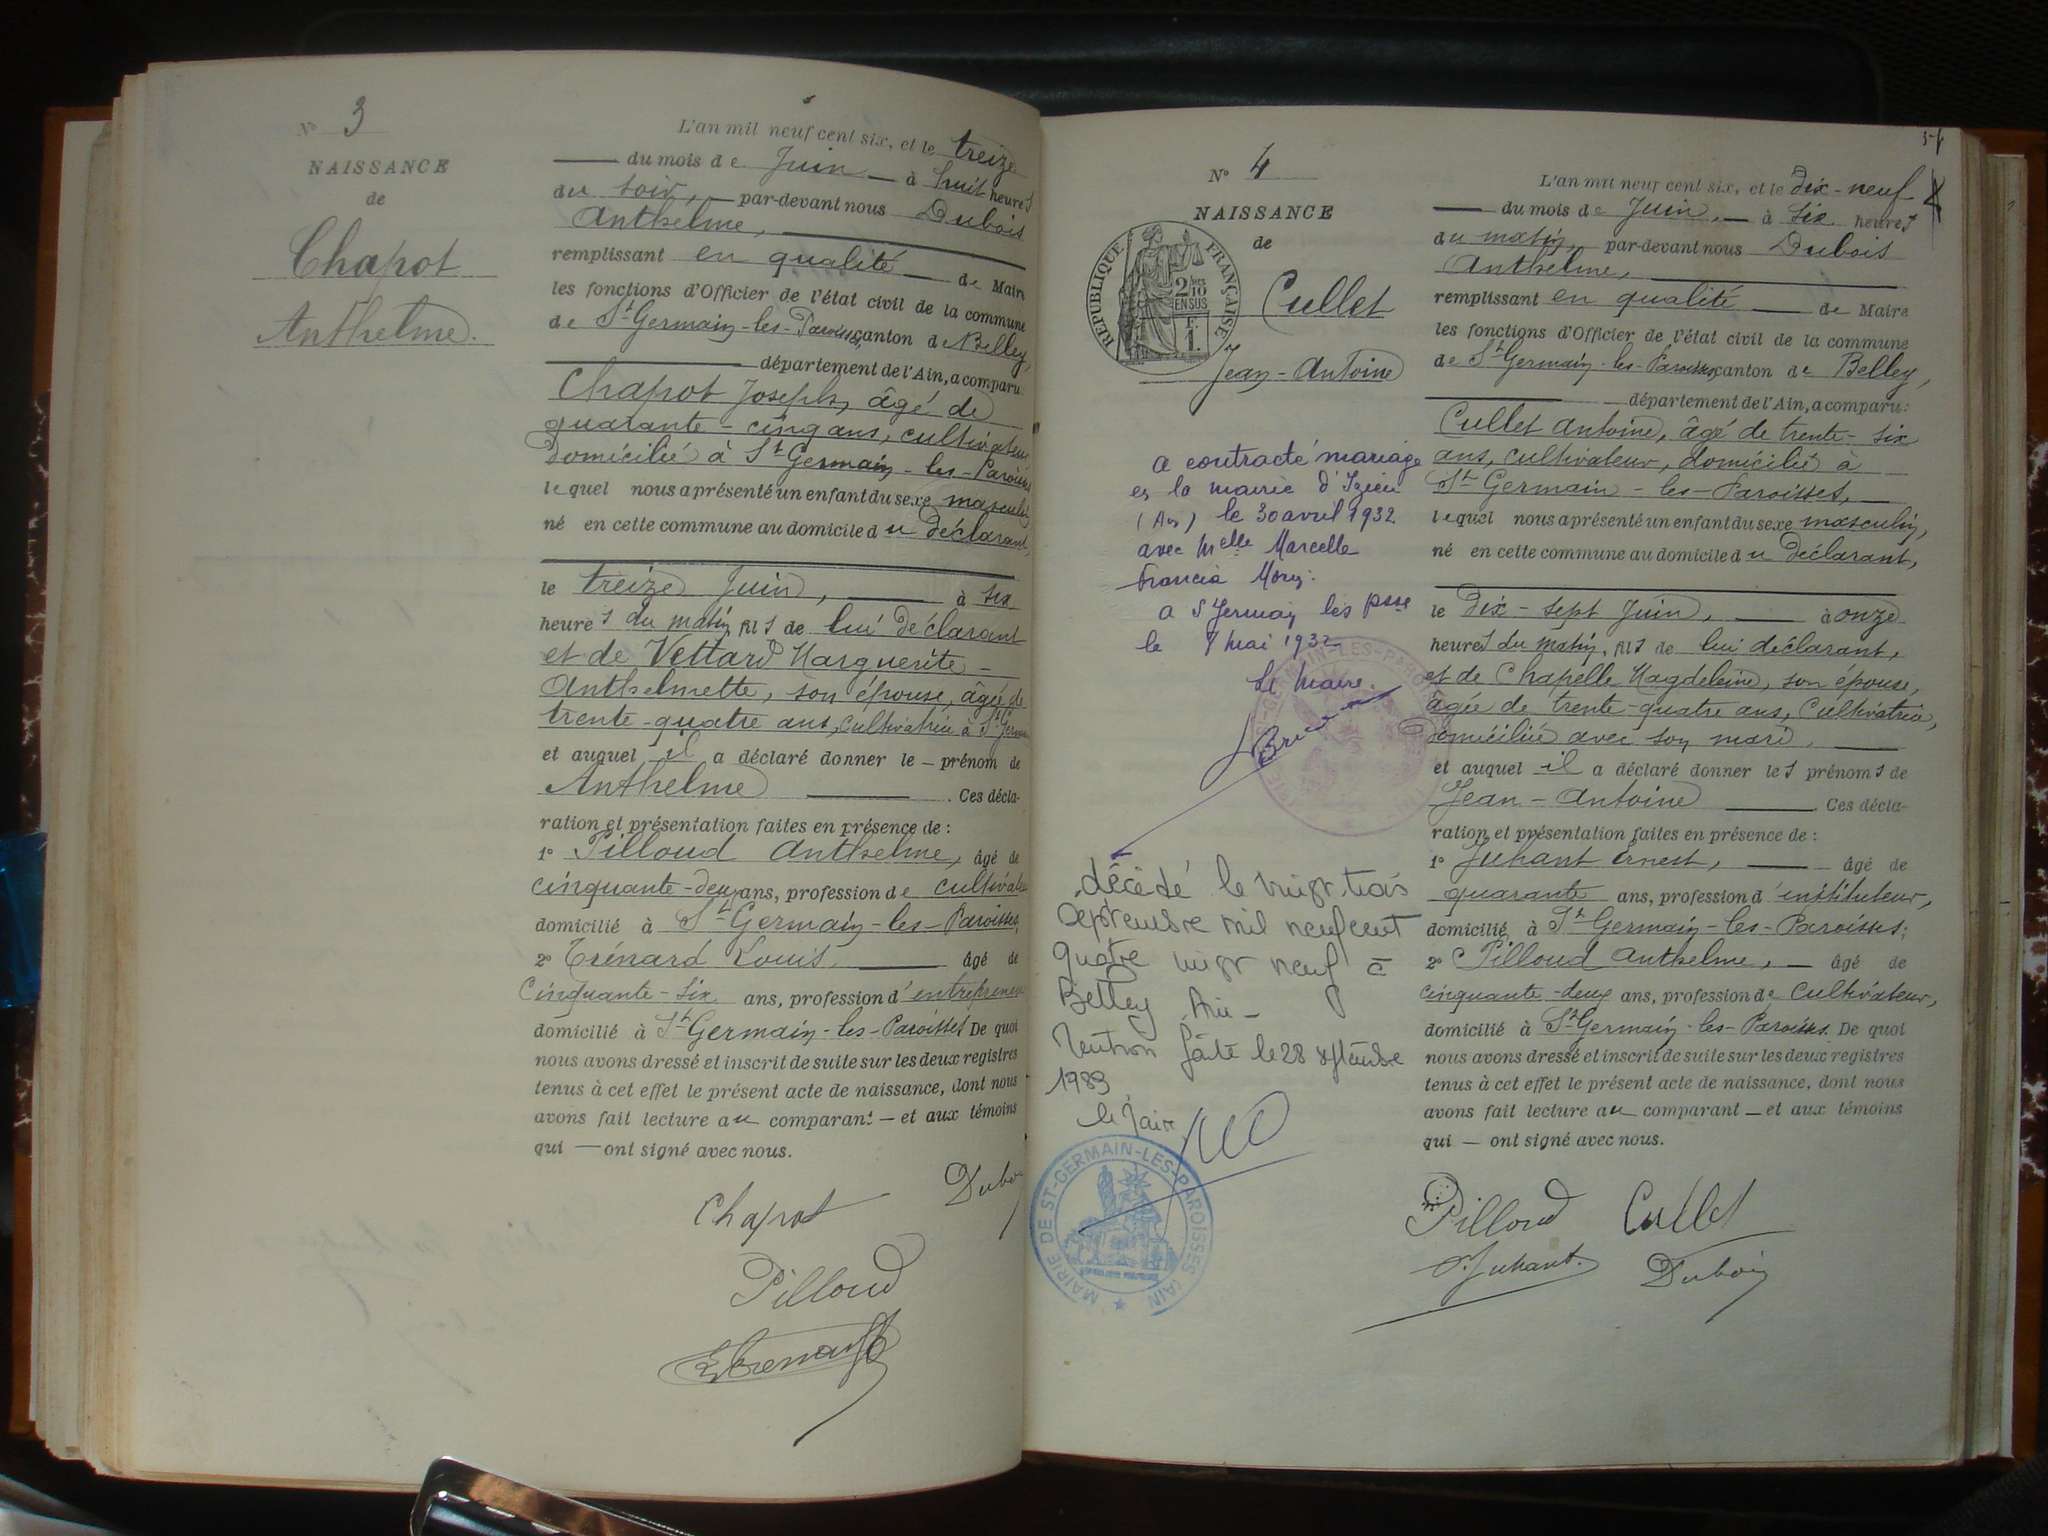 N° 3
NAISSANCE
de
Chapot
Anthelme.
L'an mil neuf cent six, et le treize
du mois de Juin à huit heures
du soir, par-devant nous Dubois
Anthelme,
remplissant en qualité de Maire
les fonctions d'Officier de l'état civil de la commune
de St Germain-les-Paroisses, canton de Belley,
département de l'Ain, a comparu
Chapot Joseph, âgé de
quarante-cinq ans, cultivateur
domicilié à St Germain-les-Paroisses
lequel nous a présenté un enfant du sexe masculin
né en cette commune au domicile du déclarant,
le treize Juin, à six
heures du matin, fils de lui déclarant
et de Vettard Marguerite-
Anthelmette, son épouse, âgée de
trente-quatre ans, cultivatrice à St Germain
et auquel il a déclaré donner le prénom de
Anthelme . Ces décla-
ration et présentation faites en présence de :
1° Pilloud Anthelme, âgé de
cinquante-deux ans, profession de cultivateur
domicilié à St Germain-les-Paroisses,
2° Trénard Louis, âgé de
cinquante-six ans, profession d'entrepreneur
domicilié à St Germain-les-Paroisses De quoi
nous avons dressé et inscrit de suite sur les deux registres
tenus à cet effet le présent acte de naissance, dont nous
avons fait lecture au comparant — et aux témoins
qui — ont signé avec nous.
Chapot Dubois
Pilloud
Trenard
N° 4
NAISSANCE
de
REPUBLIQUE FRANÇAISE
2/10 EN SUS
F. 1.
Cullet
Jean-Antoine
a contracté mariage
en la mairie d'Izieu
(Ain) le 30 avril 1932
avec Melle Marcelle
Francia
a St Germain les psses
le mai 1932
Le Maire.
décédé le vingt trois
septembre mil neuf cent
quatre vingt neuf à
Belley Ain -
Mention faite le 28 septembre
1989
le Maire
MAIRIE DE ST-GERMAIN-LES-PAROISSES (AIN)
L'an mil neuf cent six, et le dix-neuf
du mois de Juin, à six heures
du matin, par-devant nous Dubois
Anthelme,
remplissant en qualité de Maire
les fonctions d'Officier de l'état civil de la commune
de St Germain-les-Paroisses, canton de Belley,
département de l'Ain, a comparu :
Cullet Antoine, âgé de trente-six
ans, cultivateur, domicilié à
St Germain-les-Paroisses,
lequel nous a présenté un enfant du sexe masculin,
né en cette commune au domicile du déclarant,
le dix-sept Juin, à onze
heures du matin, fils de lui déclarant,
et de Chapelle Magdeleine, son épouse,
âgée de trente-quatre ans, cultivatrice,
domiciliée avec son mari,
et auquel il a déclaré donner les prénoms de
Jean-Antoine . Ces décla-
ration et présentation faites en présence de :
1° Juhant Ernest, âgé de
quarante ans, profession d'instituteur,
domicilié à St Germain-les-Paroisses;
2° Pilloud Anthelme, âgé de
cinquante-deux ans, profession de cultivateur,
domicilié à St Germain-les-Paroisses. De quoi
nous avons dressé et inscrit de suite sur les deux registres
tenus à cet effet le présent acte de naissance, dont nous
avons fait lecture au comparant — et aux témoins
qui — ont signé avec nous.
Pilloud Cullet
Juhant Dubois